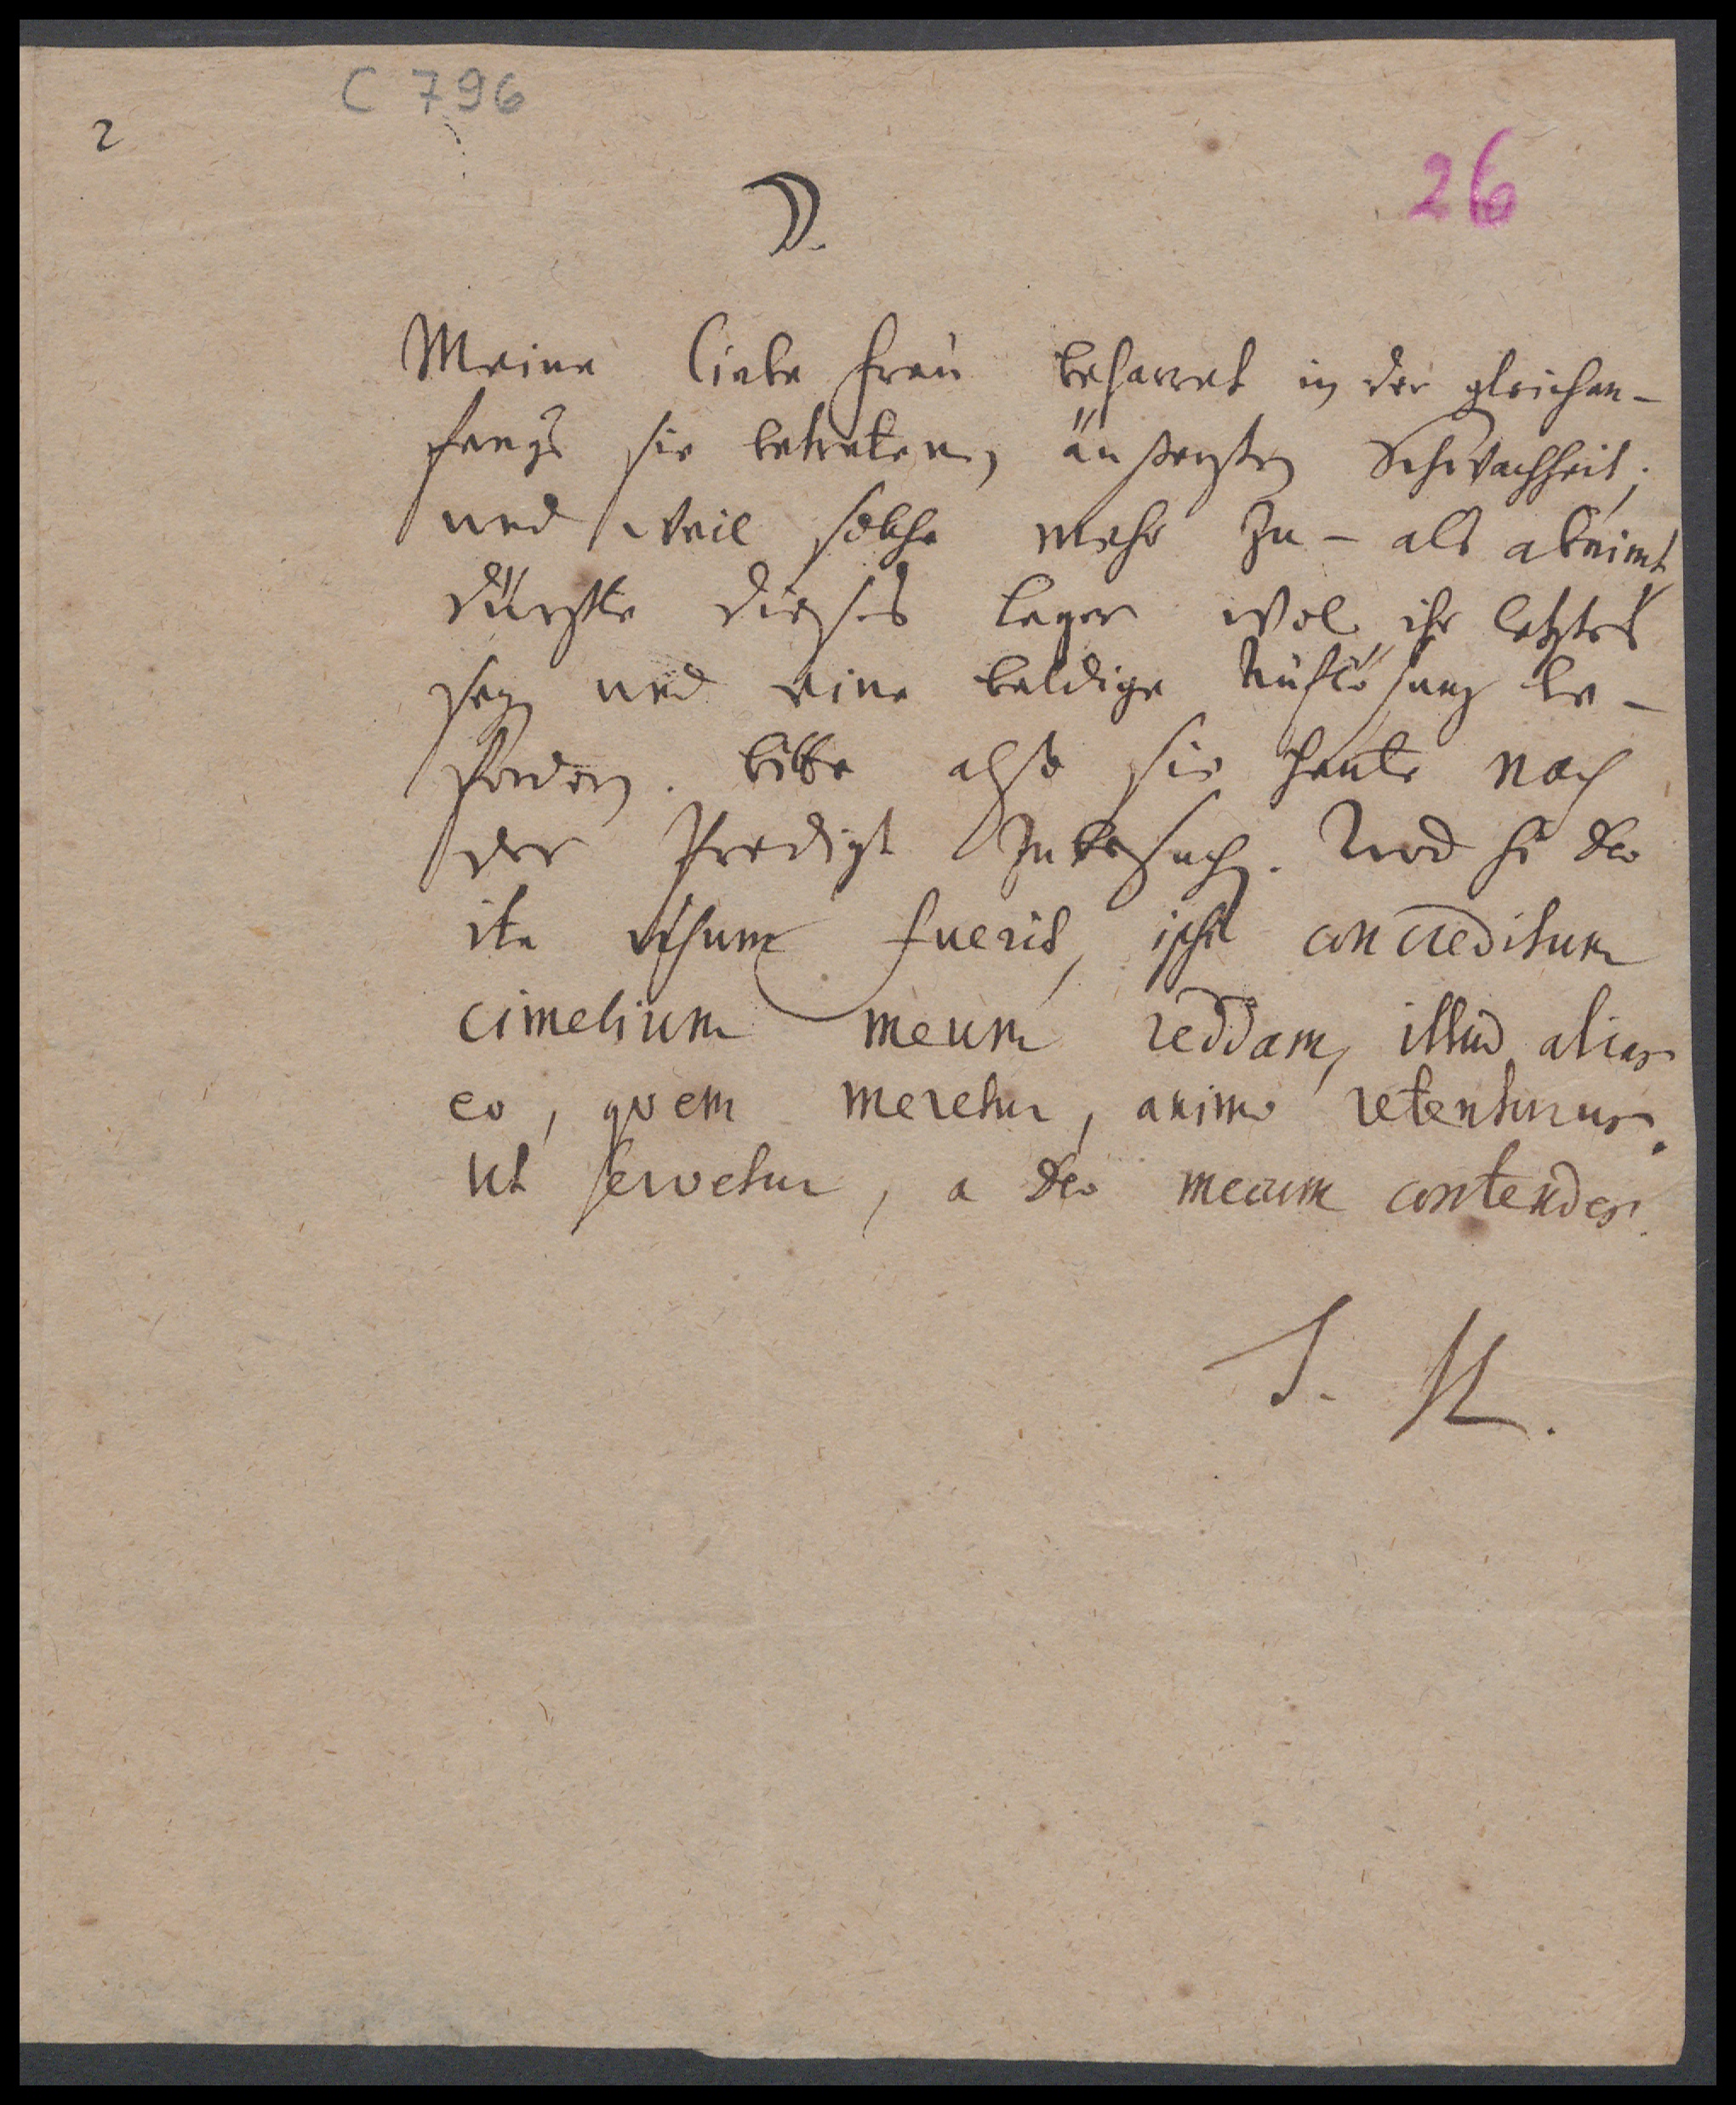 C 796
2
26
D.
Meine liebe Frau beharret in der gleichan-
fangs sie betretenen äußersten Schwachheit;
und weil solche mehr zu- als abnimt,
dürfte dieses Lager wol ihr letztes
seyn und eine baldige Auflösung be-
fördern. bitte also sie heute nach
der Predigt zu besuchen. Und si Deo
ita visum fuerit, ipsi concreditum
cimelium meum reddam, illud alias
eo, quem meretur, animo retenturus.
Ut servetur, a Deo mecum contendes.
T. H.